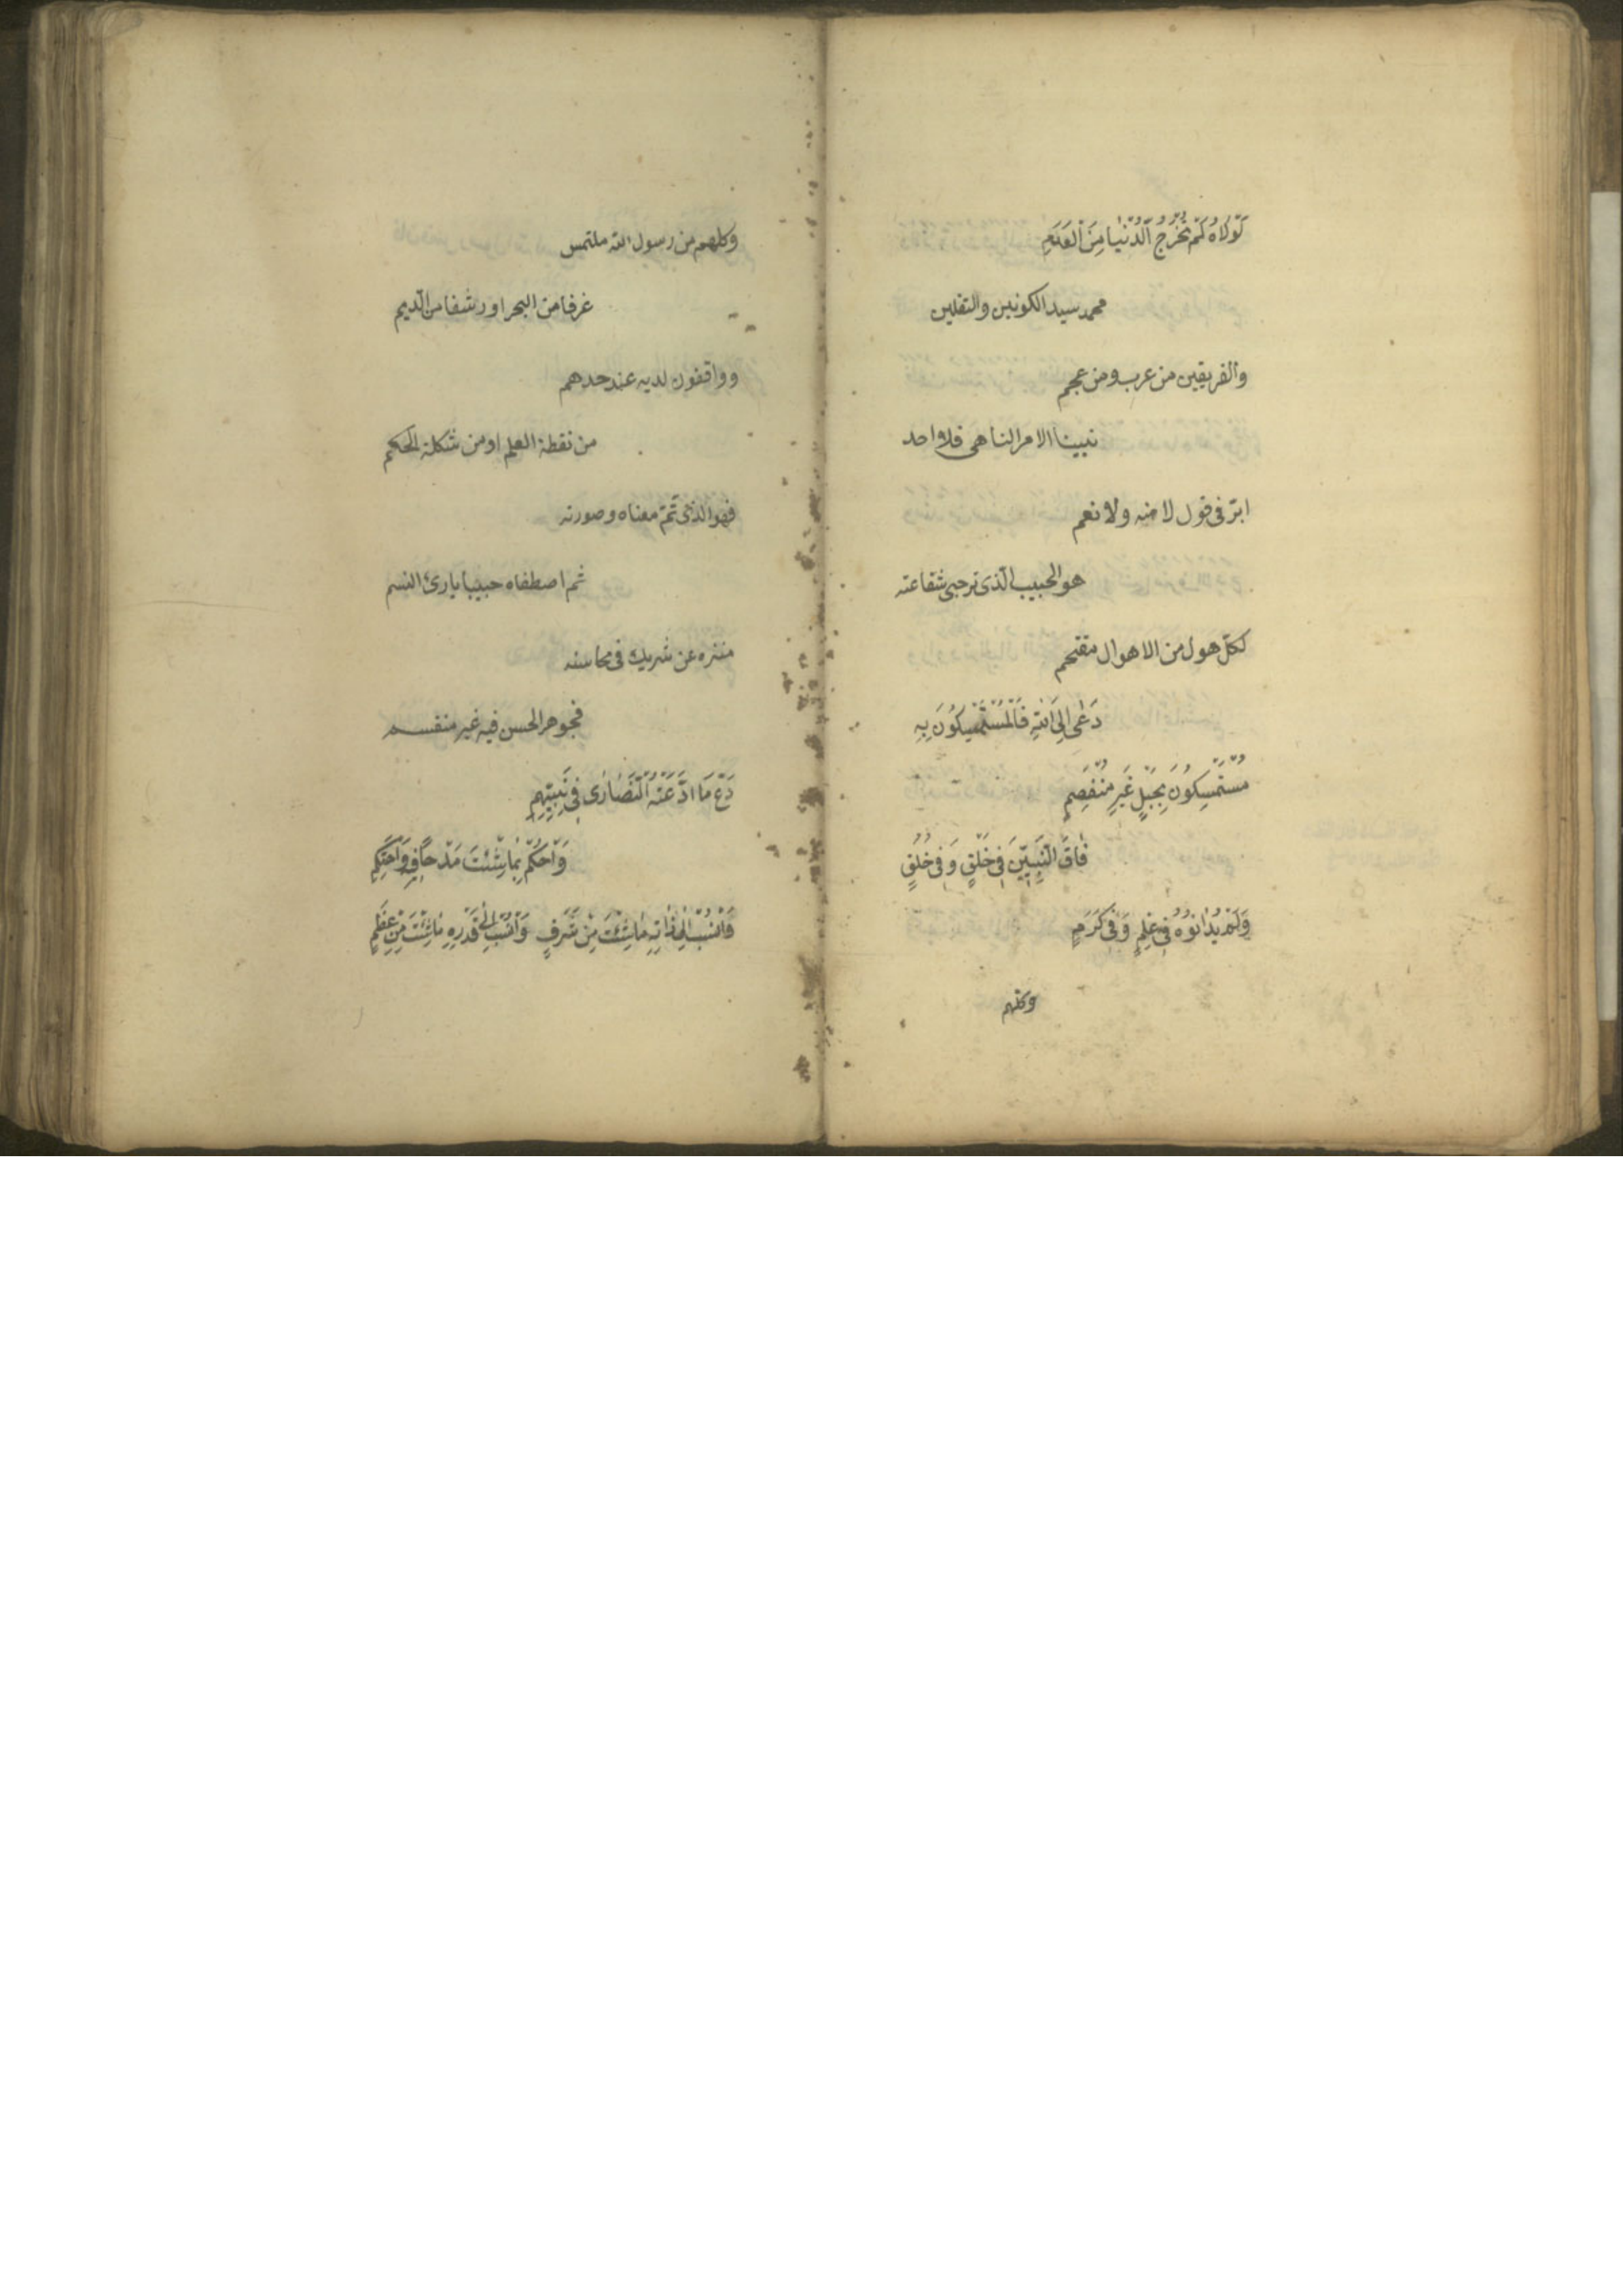 لَوْلَاهُ لَمْ تُخْرَجُ الدُّنْيَا مِنَ الْعَدَمِ
محمد سيد الكونين والثقلين
والفريقين من عرب ومن عجم
نبينا الامر الناهى فلا واحد
ابرّ فى قول لا منه ولا نعم
هو الحبيب الّذى ترجى شفاعته
لكلّ هول من الاهوال مقتحم
دَعٰى اِلَى اللّٰهِ فَالْمُسْتَمْسِكُونَ بِهِ
مُسْتَمْسِكُونَ بِحَبْلٍ غَيْرِ مُنْفَصِمِ
فَاقَ النَّبِيّينَ فِى خَلْقٍ وَفِى خُلُقٍ
وَلَمْ يُدَانُوهُ فِى عِلْمٍ وَفِى كَرَمٍ
وكلهم
وكلهم من رسول الله ملتمس
غرفا من البحر او رشفا من الدّيم
وواقفون لديه عند حدهم
من نقطة العلم او من شكلة الحكم
فهو الذى تمّ معناه وصورته
ثم اصطفاه حبيبا بارئ النسم
منزه عن شريك فى محاسنه
فجوهر الحسن فيه غير منقسم
دَعْ مَا ادَّعَتْهُ النَّصَارٰى فِى نَبِيِّهِمِ
وَاحْكُمْ بِمَا شِئْتَ مَدْحًا فِيهِ وَاحْتَكِمِ
فَانْسُبْ اِلٰى ذَاتِهِ مَا شِئْتَ مِنْ شَرَفٍ وَانْسُبْ اِلٰى قَدْرِهِ مَا شِئْتَ مِنْ عِظَمِ